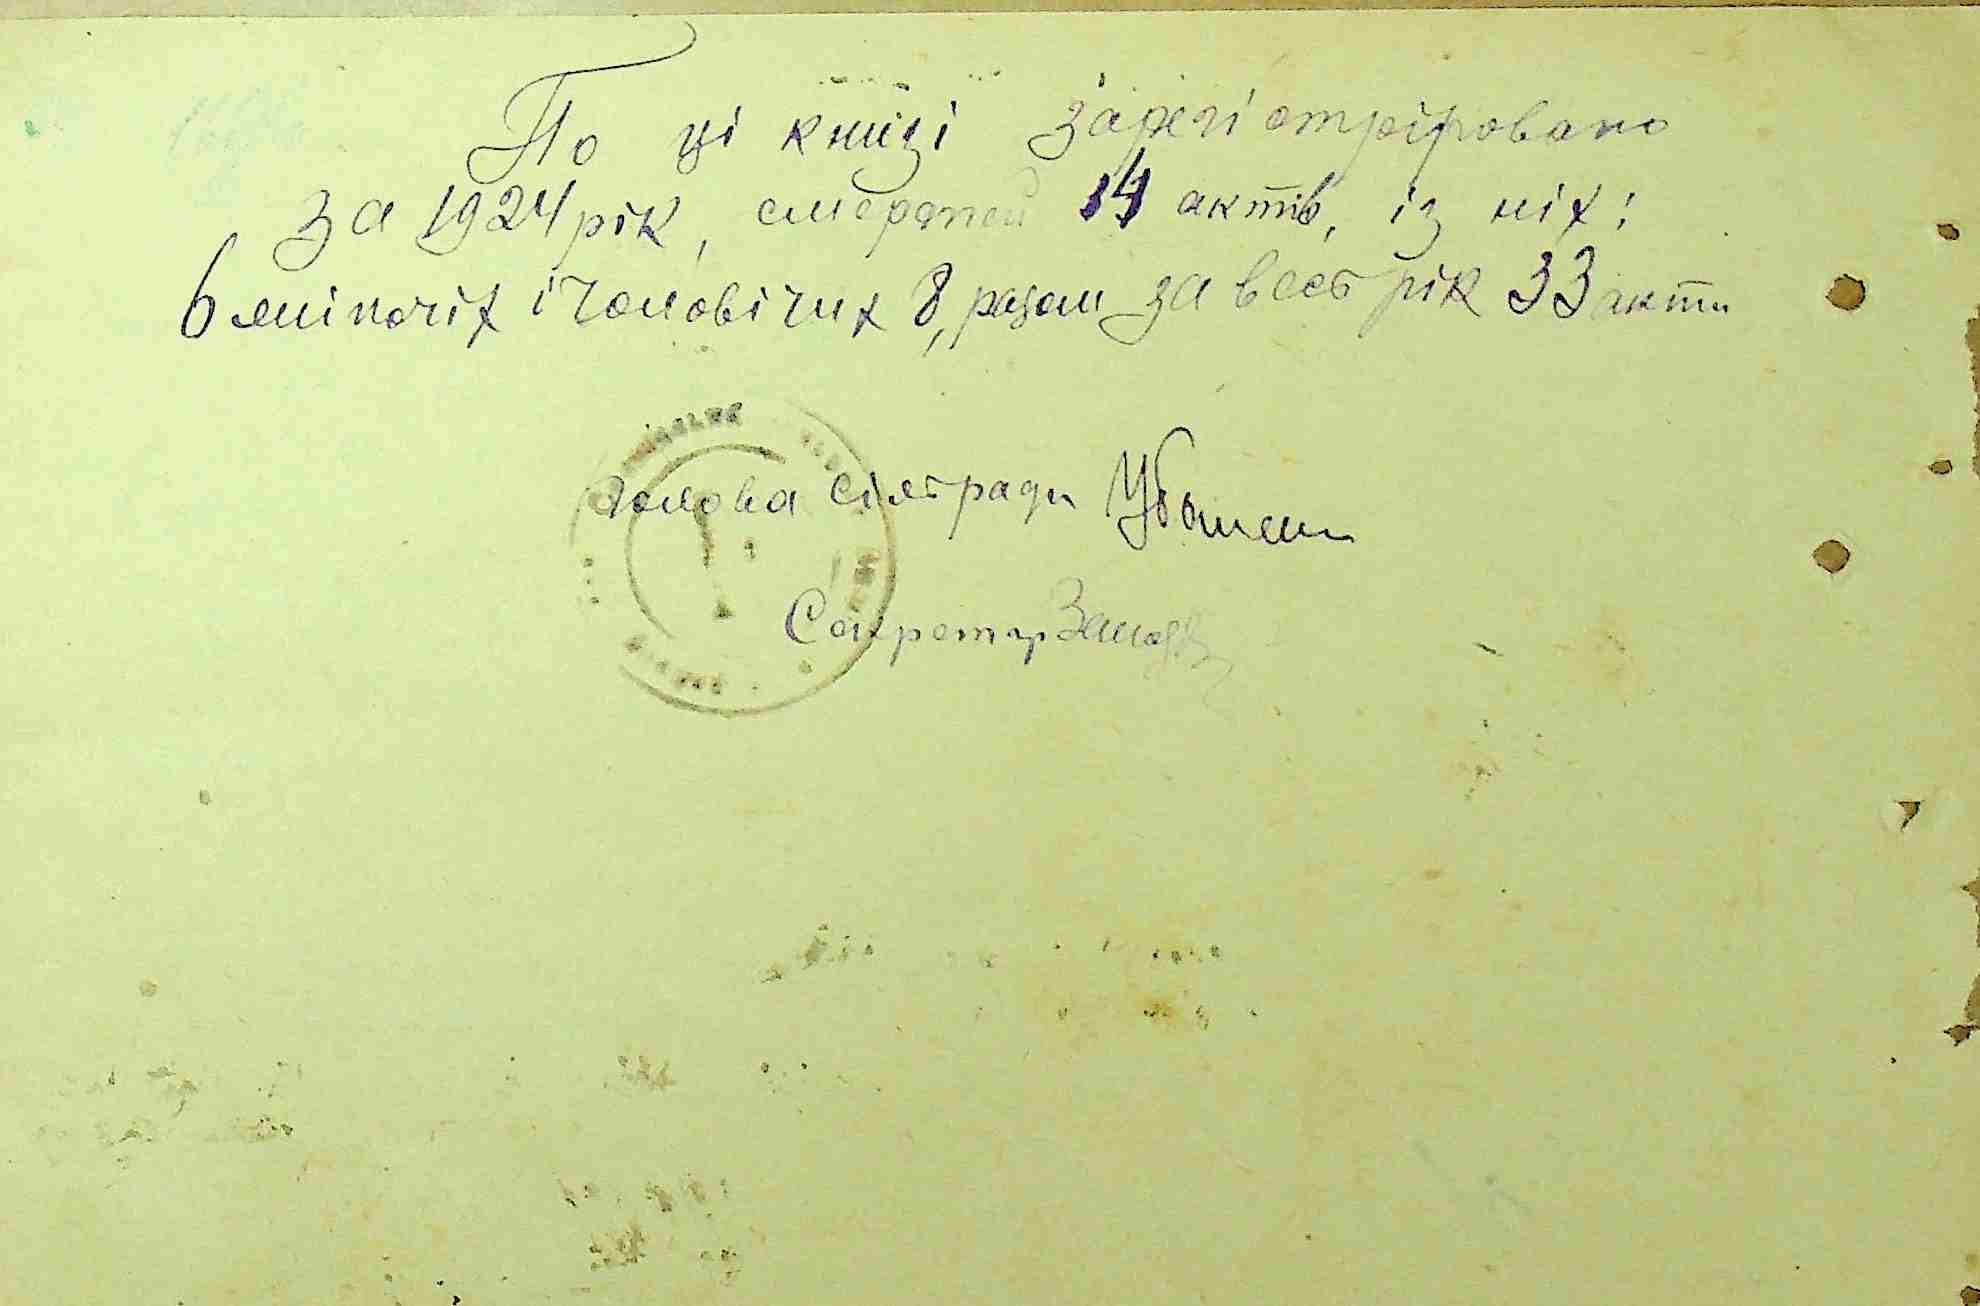 По ці книзі зарегістріровано
за 1924 рік, смертей 14 актів, із ніх:
6 жіночіх і чоловічих 8, разом за весь рік 33 акти
Голова сільради
Секретар